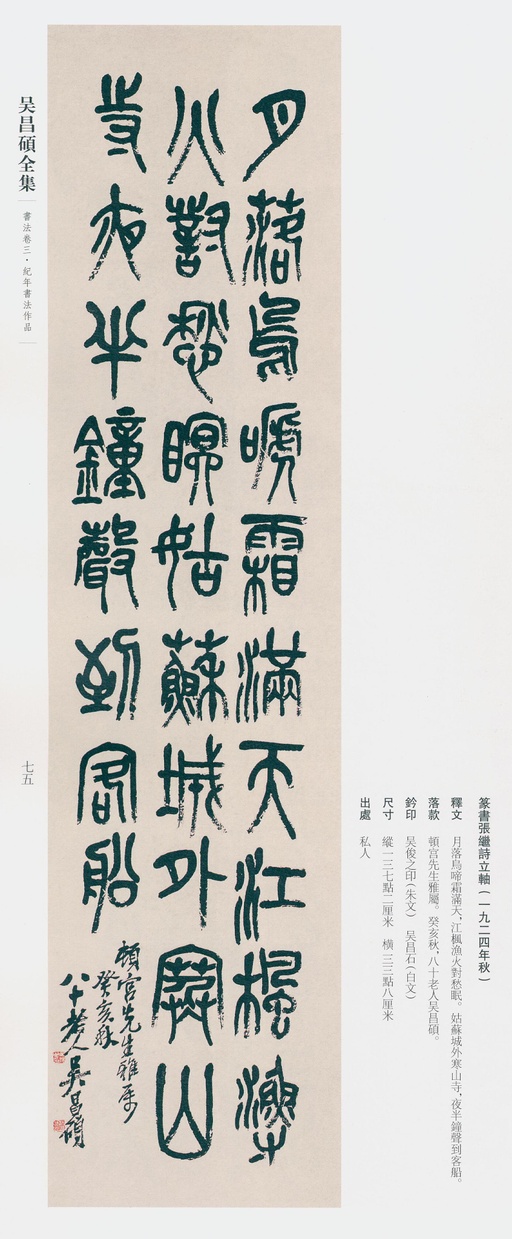 篆書張繼詩立軸(一九二四年秋)
釋文 月落烏啼霜滿天,江楓漁火對愁眠。姑蘇城外寒山寺,夜半鐘聲到客船。
落款 頓宮先生雅屬。癸亥秋,八十老人吴昌碩。
鈐印 吴俊之印(朱文) 吴昌石(白文)
尺寸 縱一三七點二厘米 橫三三點八厘米
出處 私人
月落烏嗁霜滿天江楓漁
火對愁眠姑蘇城外寒山
寺夜半鐘聲到客船
頓宮先生雅屬
癸亥秋
八十老人吴昌碩
吴昌碩全集
書法卷三·紀年書法作品
七五